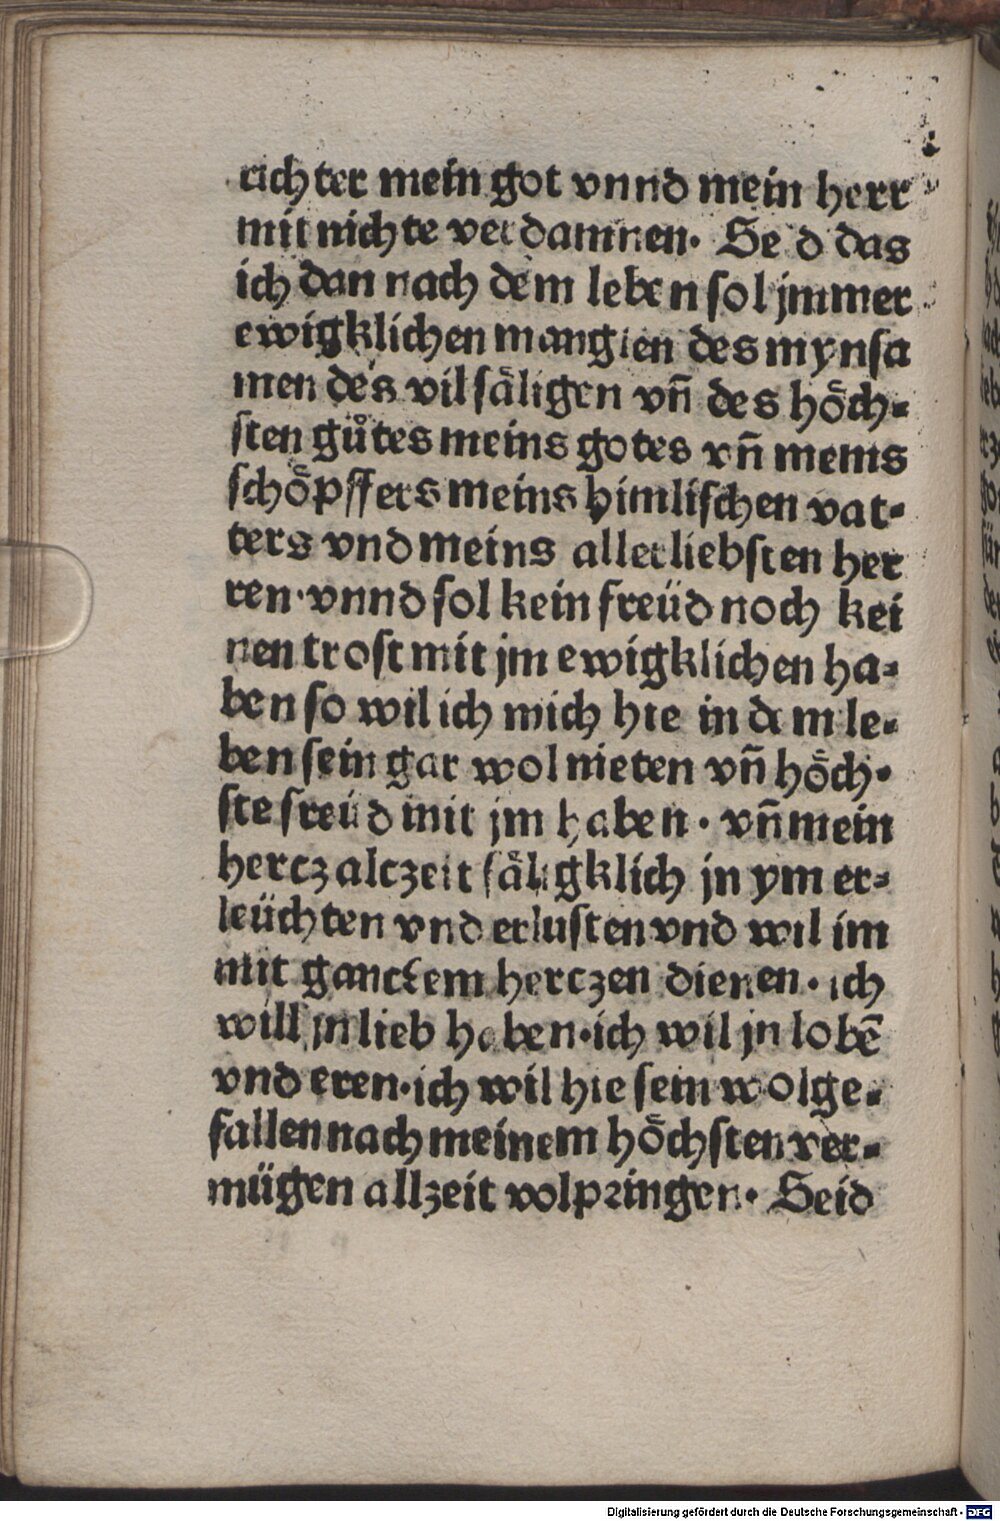 richter mein got vnnd mein herr
mit nichte verdamnen. Seid das
ich dan nach dem leben sol jmmer
ewigklichen manglen des mynsa
men des vil säligen vn̄ des höch⸗
sten gůtes meins gotes vn̄ meins
schöpffers meins himlischen vat⸗
ters vnd meins allerliebsten her
ren·vnnd sol kein freüd noch kei
nen trost mit jm ewigklichen ha⸗
ben so wil ich mich hie in dem le⸗
ben sein gar wol nieten vn̄ höch⸗
ste freüd mit jm haben. vn̄ mein
hercz alczeit säligklich jn ym er⸗
leüchten vnd erlusten vnd wil im
mit ganczem herczen dienen. ich
will jn lieb haben·ich wil jn lobē
vnd eren·ich wil hie sein wolge⸗
fallen nach meinem höchsten ver⸗
mügen allzeit volpringen. Seid
Digitalisierung gefördert durch die Deutsche Forschungsgemeinschaft - DFG